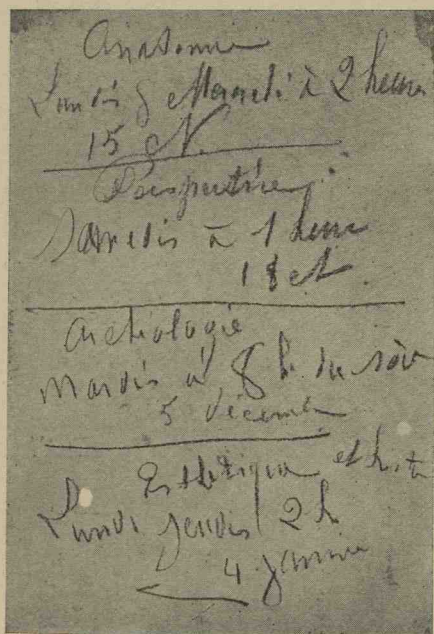 Anatomie
Lundis & Mercredi à 2 heures
15 N.
Perspective
Samedis à 1 heure
18 N
Archéologie
Mardis à 8 h. du soir
5 décembre
Esthétique et hist
Lundi Jeudis 2 h
4 Janvier